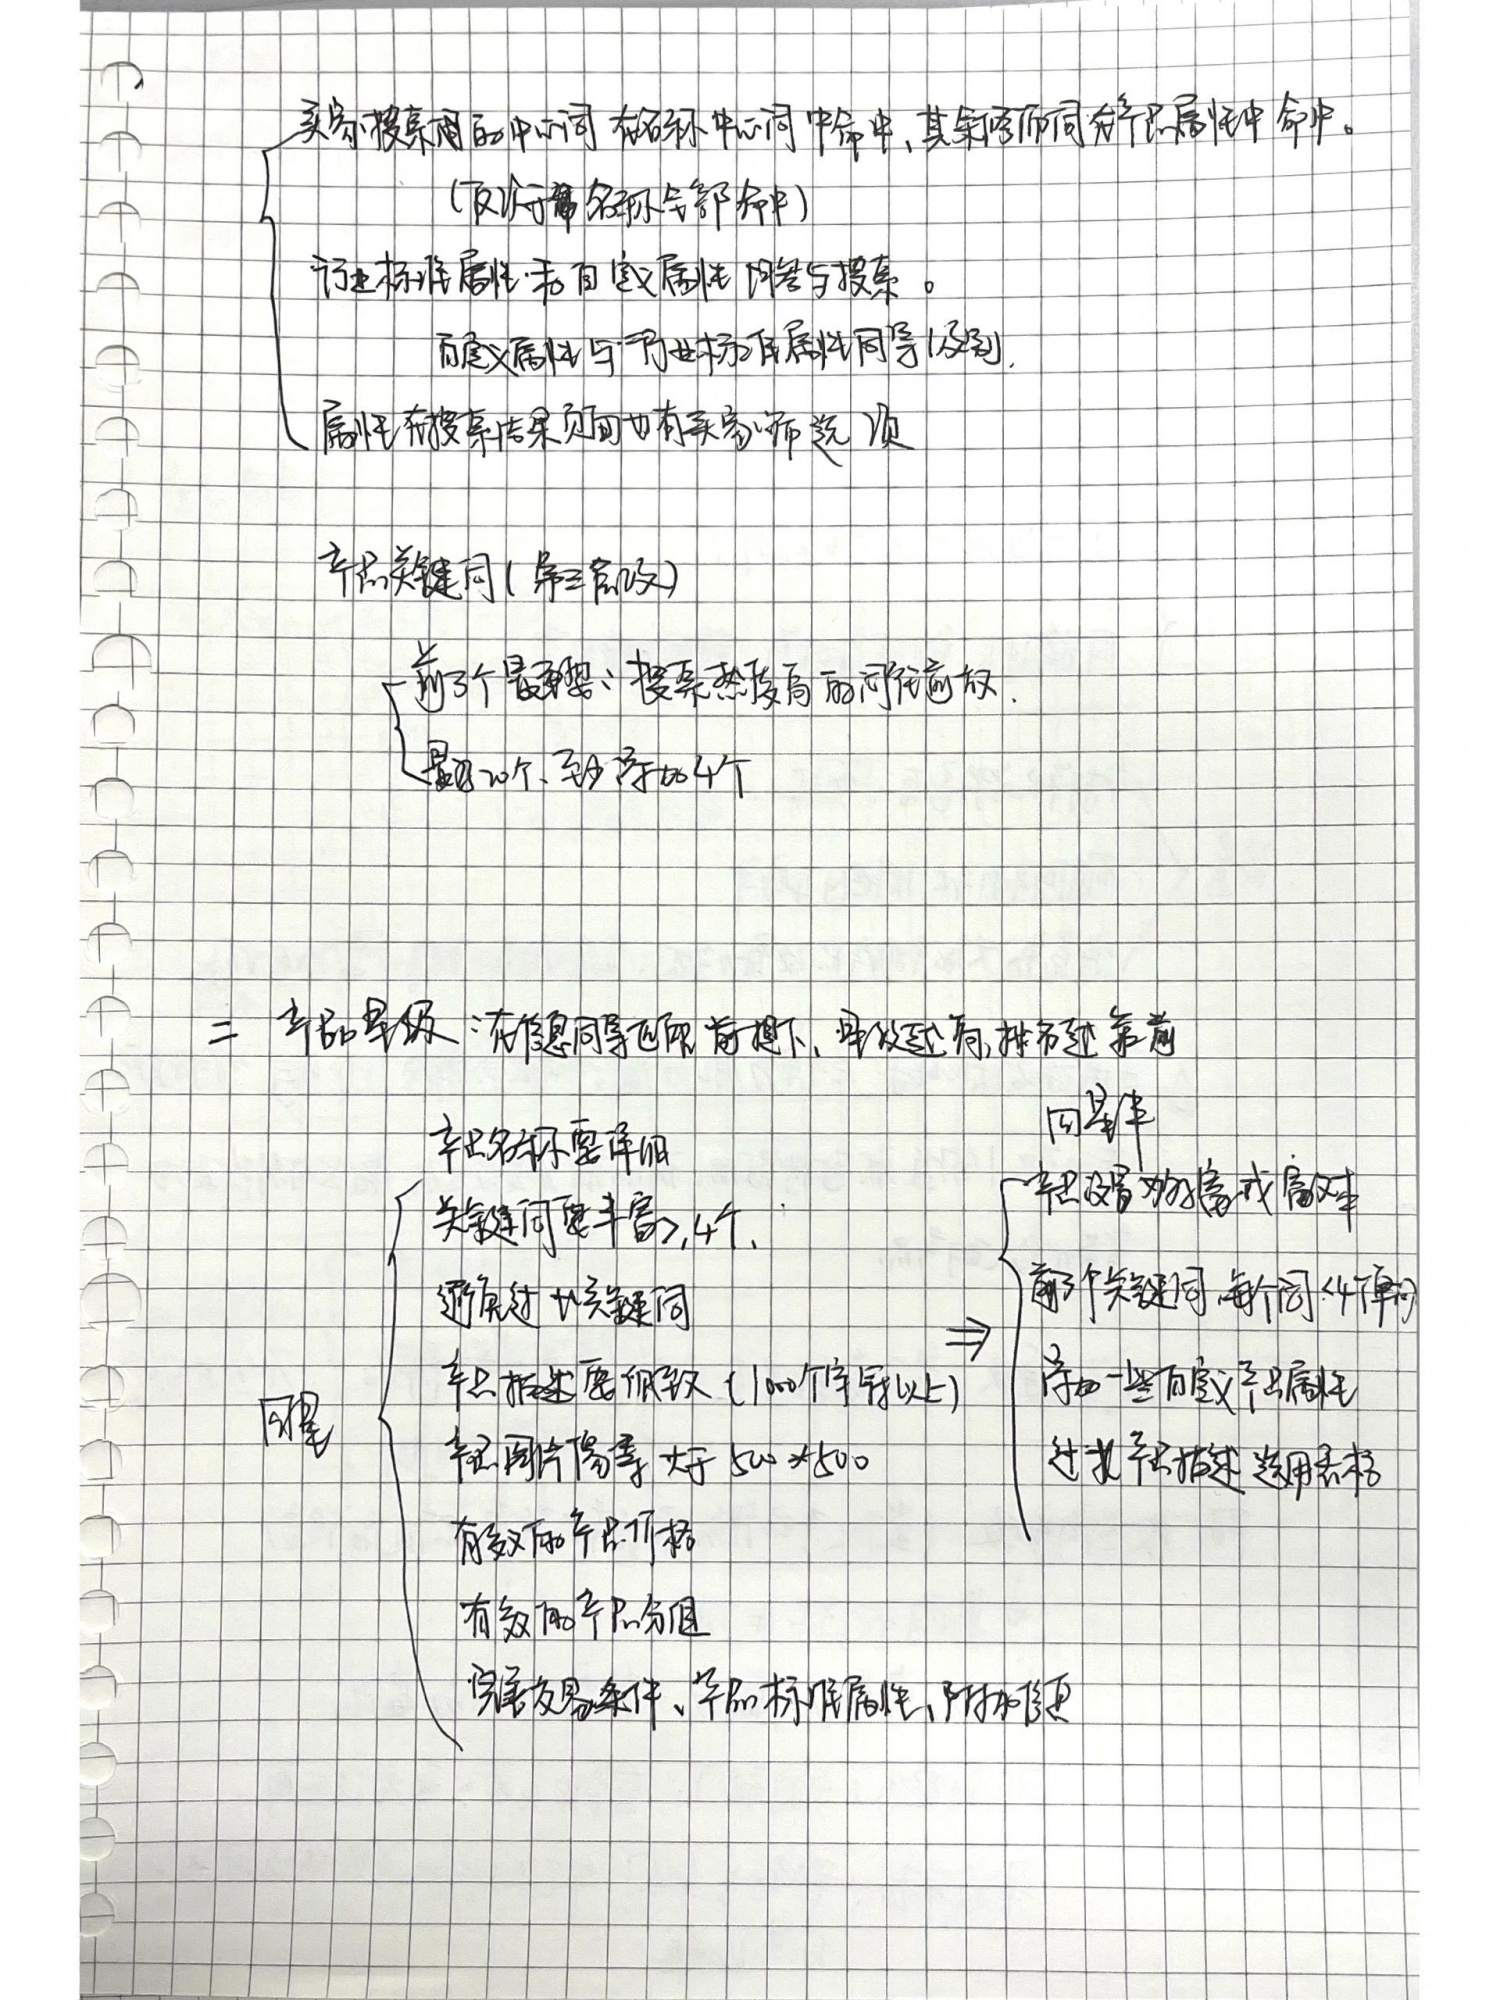 买家搜索词的中心词在名称中心词中命中,其余修饰词在产品属性中命中。
(仅次于名称全部命中)
行业标准属性和自定义属性均参与搜索。
自定义属性与行业标准属性同等级别.
属性在搜索结果页面也有买家筛选项
产品关键词(第三层级)
前3个最重要:搜索热度高的词往前放.
最多20个、至少添加4个
二 产品星级:在信息同等匹配前提下、星级越高,排名越靠前
四星
产品名称要详细
关键词要丰富≥4个.
避免过大关键词
产品描述要细致(1000个字符以上)
产品图片像素大于500*500
有效的产品价格
有效的产品分组
完善交易条件、产品标准属性、附加信息
⇒
四星半
产品设置为橱窗或
前3个关键词,每个词<4个单词
添加一些自定义产品属性
产品描述选用表格